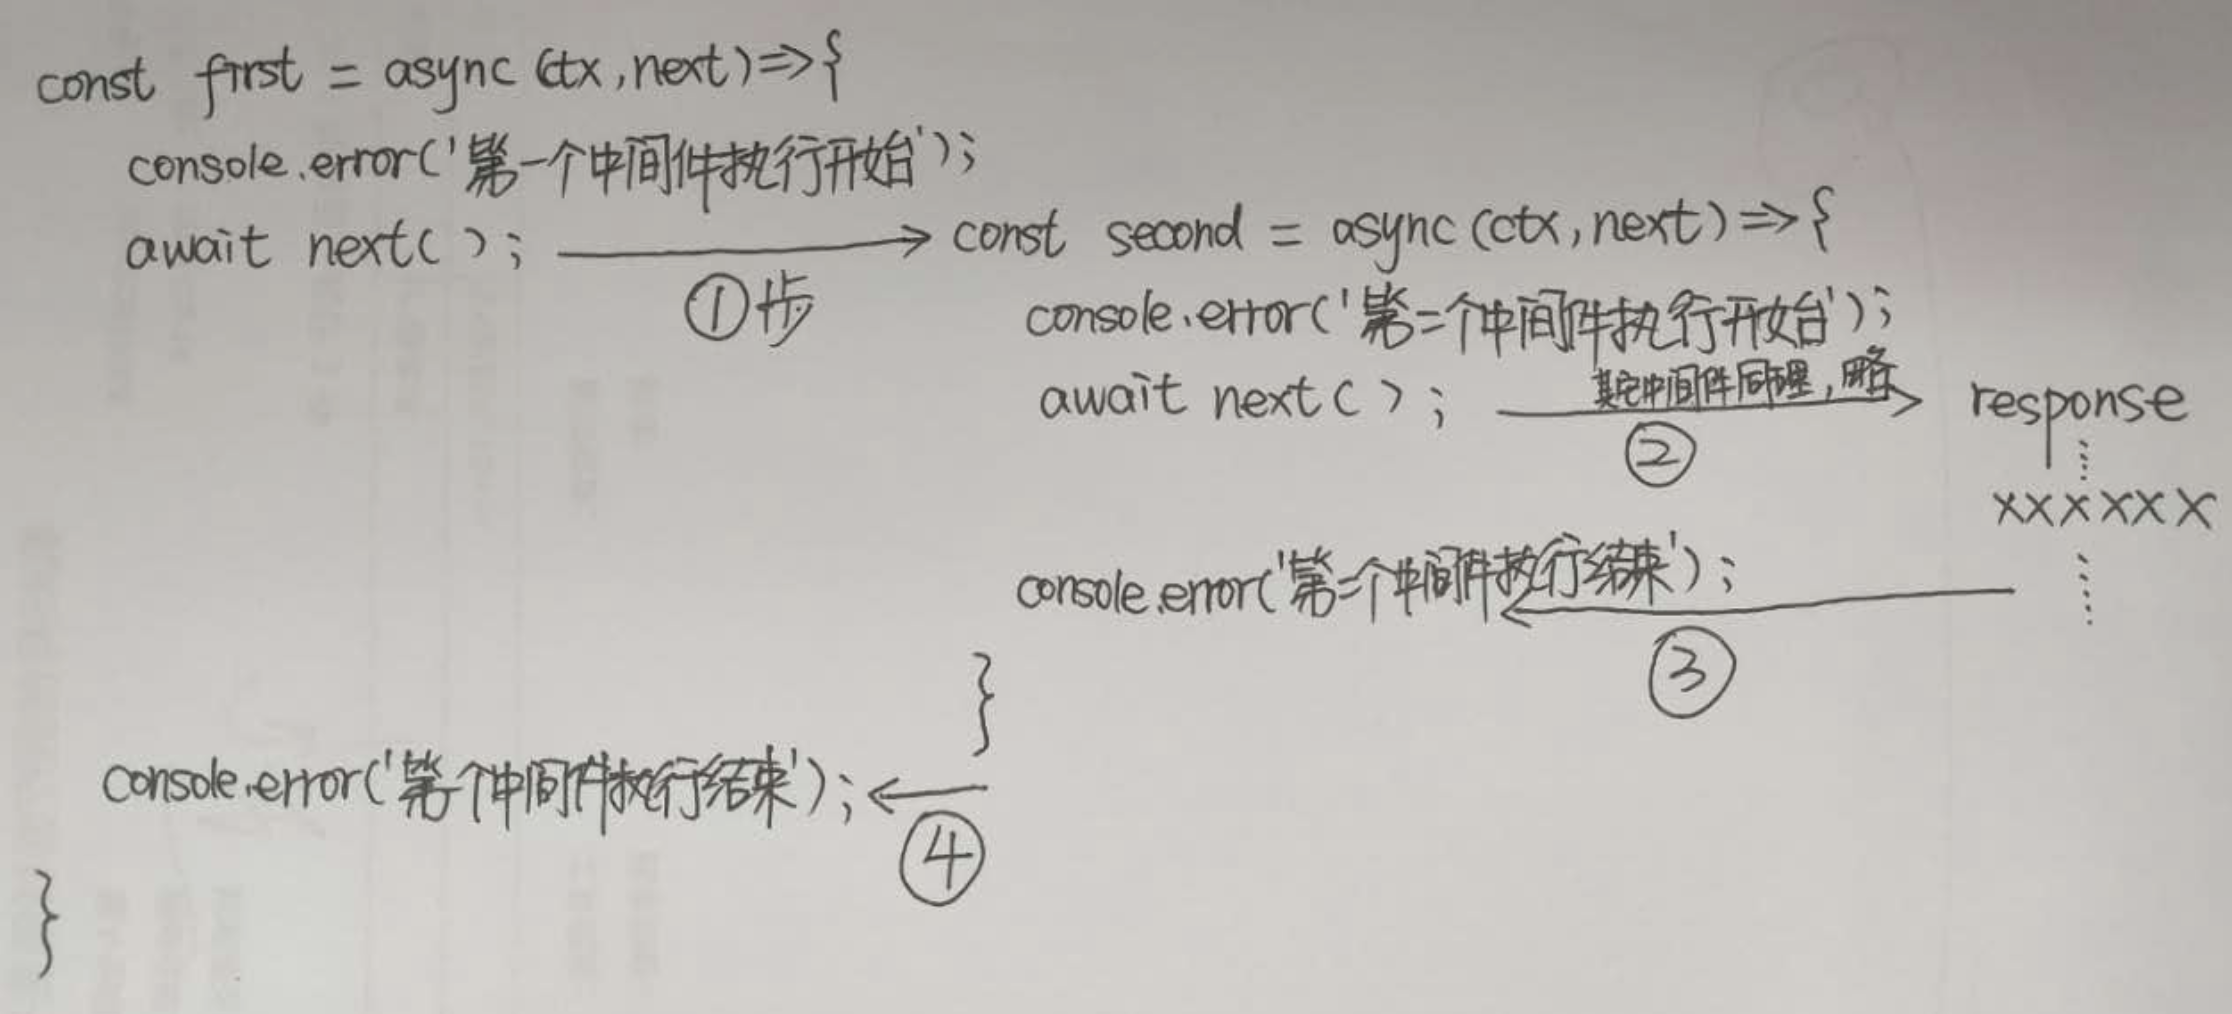 const first = async (ctx,next)=>{
console.error('第一个中间件执行开始');
await next( );
①步
const second = async (ctx,next)=>{
console.error('第二个中间件执行开始');
await next( );
其它中间件同理,略
②
response
xxxxxx
console.error('第二个中间件执行结束');
③
}
console.error('第一个中间件执行结束');
④
}